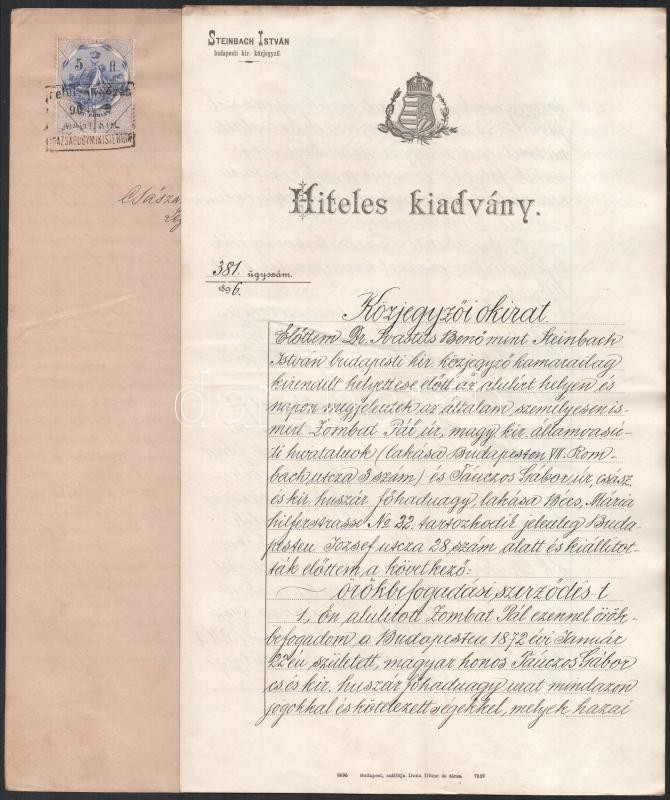 STEINBACH ISTVÁN
budapesti kir. közjegyző.
5 ft.
90
IGAZSÁGÜGYMINISTERIUM
Császá
Hiteles kiadvány.
381. ügyszám.
1896.
Közjegyzői okirat.
Előttem Dr. Svastits Benő mint Steinbach
István budapesti kir. közjegyző kamarailag
kirendelt helyettese előtt az alulírt helyen és
napon megjelentek az általam személyesen is-
mert Zombat Pál úr, magy. kir. államvasú-
ti hivatalnok (lakása Budapesten VII. Rom-
bach utcza 3 szám) és Tánczos Gábor úr, csász.
és kir. huszár főhadnagy, lakása Bécs, Mária
hilferstrasse No 22. tartozkodik jelenleg Buda-
pesten József utcza 28. szám alatt és kiállítot-
ták előttem a következő:
örökbefogadási szerződés-t
1., Én alulírott Zombat Pál ezennel örök-
befogadom a Budapesten 1872 évi Január
22én született, magyar honos Tánczos Gábor
cs és kir. huszár főhadnagy urat mindazon
jogokkal és kötelezettségekkel, melyek hazai
5696 Budapest, szállítja Dunz Döme és társa. 7019
darabanth